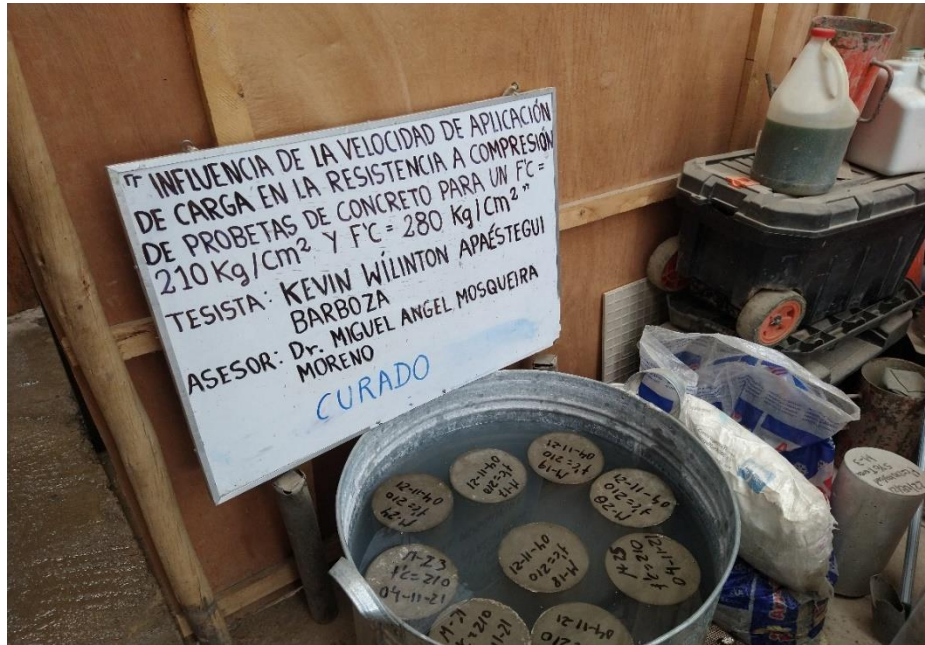 "INFLUENCIA DE LA VELOCIDAD DE APLICACIÓN
DE CARGA EN LA RESISTENCIA A COMPRESIÓN
DE PROBETAS DE CONCRETO PARA UN F'C =
210 Kg/cm² Y F'C = 280 Kg/cm²"
TESISTA: KEVIN WÍLINTON APAÉSTEGUI
BARBOZA
ASESOR: Dr. MIGUEL ANGEL MOSQUEIRA
MORENO
CURADO
M-24
f'c=210
04-11-21
M-17
f'c=210
04-11-21
M-19
f'c=210
04-11-21
M-20
f'c=210
04-11-21
M-23
f'c=210
04-11-21
M-18
f'c=210
04-11-21
M-25
f'c=210
04-11-21
M-21
f'c=210
04-11-21
04-11-21
f'c=210